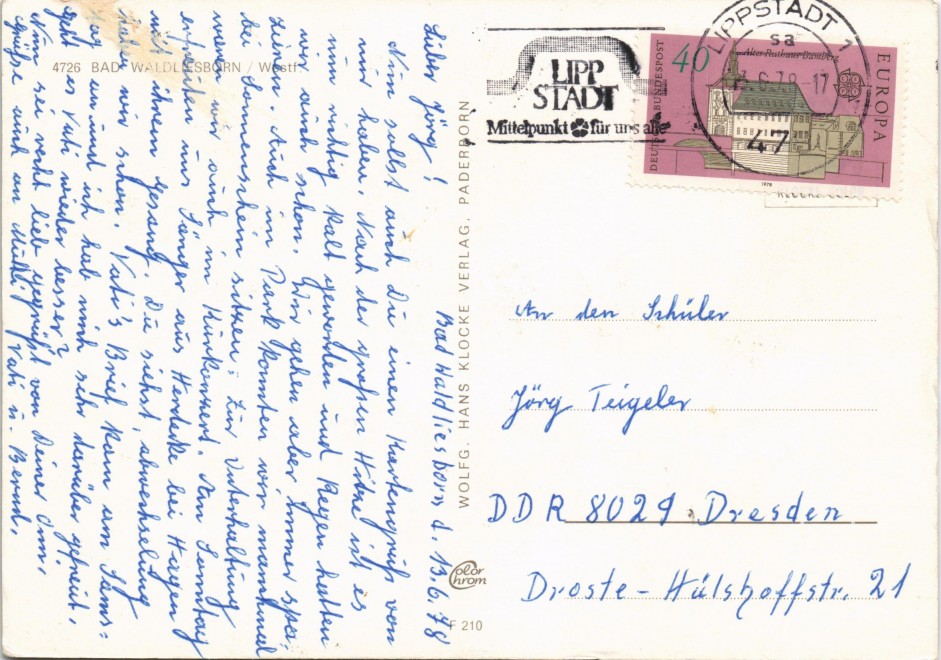 4726 BAD WALDLIESBORN / Westf.
Bad Waldliesborn, d. 13.6.78
Lieber Jörg!
Nun sollst auch Du einen Kartengruß von
mir haben. Nach der großen Hitze ist es
nun richtig kalt geworden und Regen hatten
wir auch schon. Wir gehen aber immer spa-
zieren. Auch im Park konnten wir manchmal
bei Sonnenschein sitzen. Zur Unterhaltung
waren wir auch im Kurkonzert. Am Sonntag
erfreuten uns Sänger aus Herdecke bei Hagen
mit ihrem Gesang. Du siehst, abwechselung
haben wir schon. Vati's Brief kam am Sams-
tag an und ich hab mich sehr darüber gefreut.
Geht es Vati wieder besser?
Nun sei recht lieb gegrüßt von Deiner Omi,
Grüße auch an Mutti, Vati u. Bernd.
WOLFG. HANS KLOCKE VERLAG, PADERBORN
Color
Chrom
F 210
LIPP
STADT
Mittelpunkt für uns alle
LIPPSTADT 1
sa
13.6.78-17
47
DEUTSCHE BUNDESPOST
40
Altes Rathaus Bamberg
EUROPA
1978
An den Schüler
Jörg Teigeler
DDR 8029 Dresden
Droste-Hülshoffstr. 21